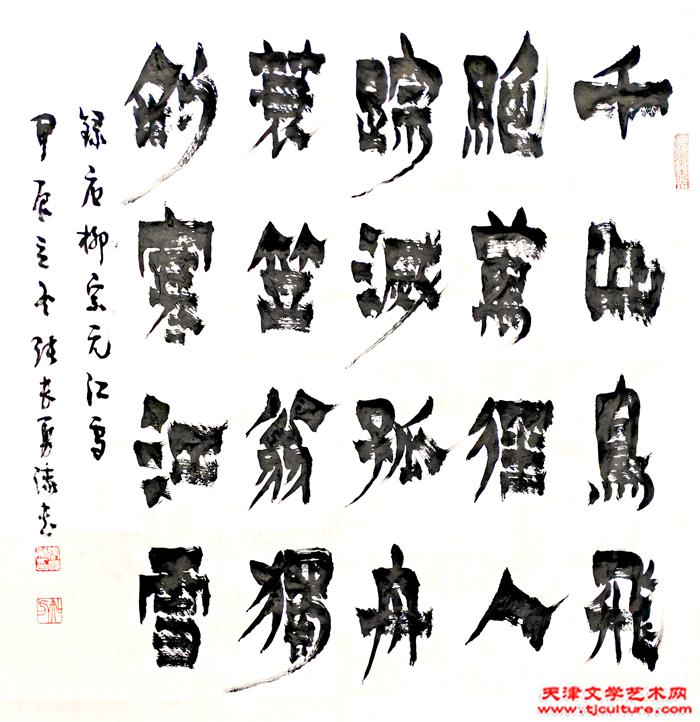 千山鳥飛
絶萬徑人
踪滅孤舟
蓑笠翁獨
釣寒江雪
錄唐柳宗元江雪
甲辰冬張勇漆書
天津文学艺术网
www.tjculture.com